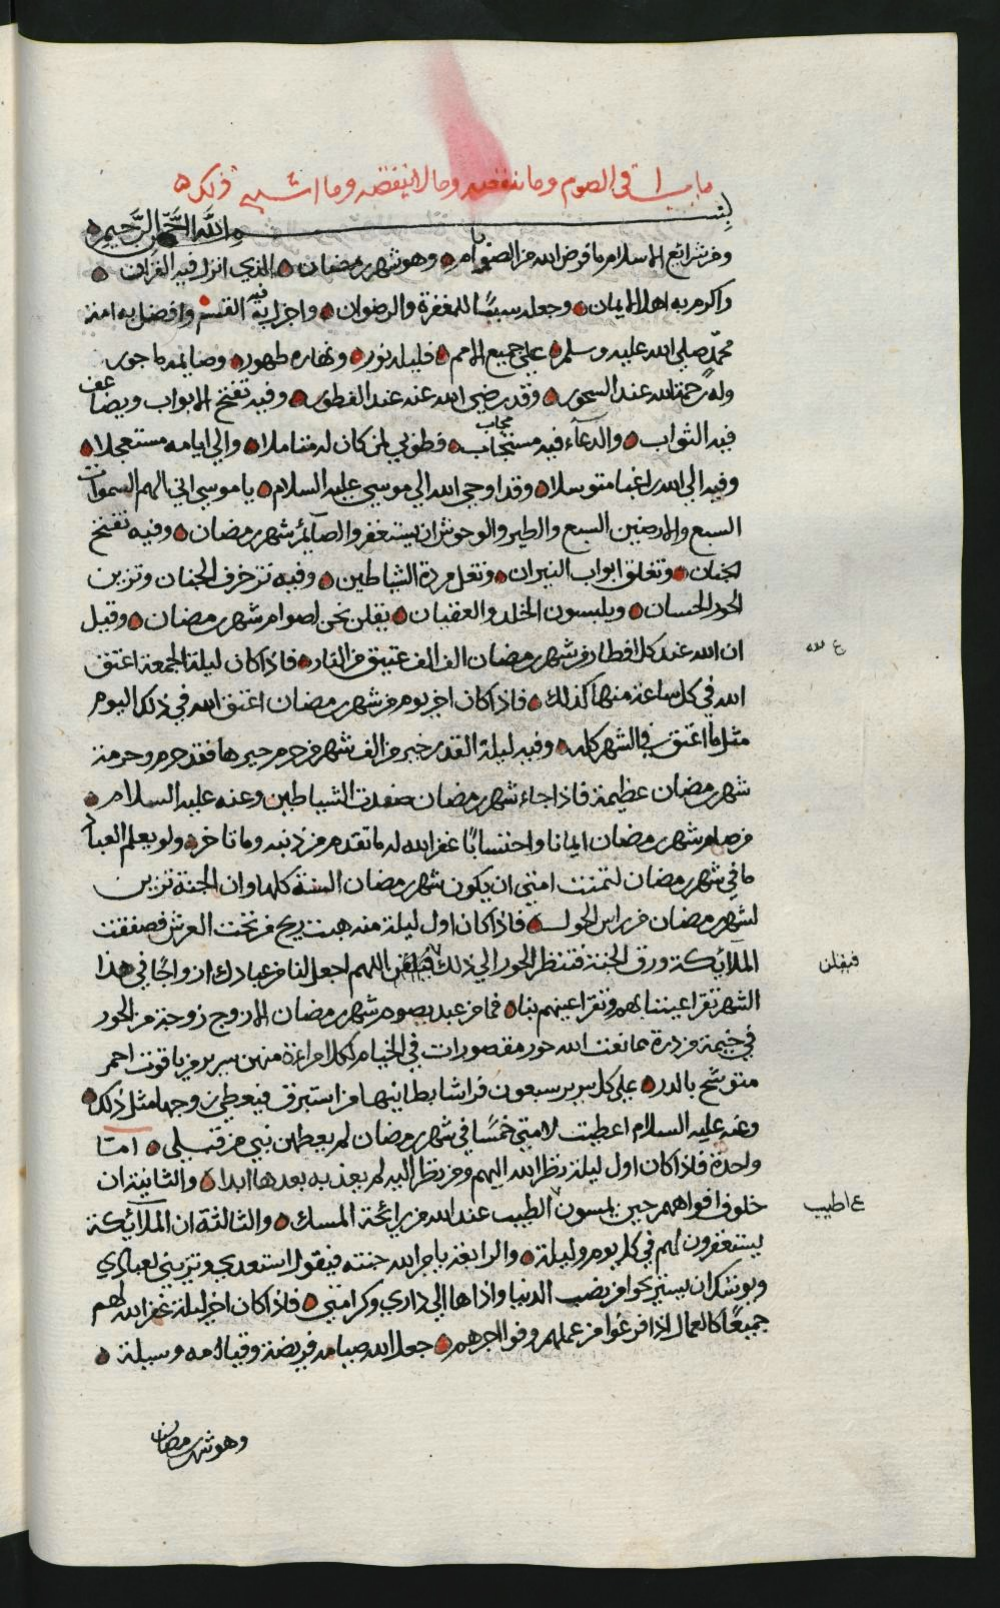 باب في الصوم وما ينقضه وما لا ينقضه وما اشبه ذلك
بسم الله الرحمن الرحيم
ومن شرائع الاسلام ما فرض الله من الصيام وهو شهر رمضان الذي انزل فيه القران
واكرم به اهل الايمان وجعله سببًا للمغفرة والرضوان واجزل فيه القسم وافضل به امة
محمّد صلى الله عليه وسلم على جميع الامم فليله نور ونهاره طهور وصائمه ماجور
وله رحمة الله عند السحور وقد رضي الله عنه عند الفطور وفيه تفتح الابواب ويضاعف
فيه الثواب والدعآء فيه مستجاب مجاب فطوبى لمن كان له متاملا والى ايامه مستعجلا
وفيه الى الله راغبا متوسلا وقد اوحى الله الى موسى عليه السلام يا موسى اني الهم السموات
السبع والارضين السبع والطير والوحوش ان يستغفروا لصآئم شهر رمضان وفيه تفتح
الجنان وتغلق ابواب النيران وتغل مردة الشياطين وفيه تزخرف الجنان وتزين
الحور الحسان ويلبسون الخلد والعقيان يقلن نحن لصوام شهر رمضان وقيل
ان الله عند كل افطار من شهر رمضان الف الف عتيق من النار فاذا كان ليلة الجمعة اعتق
ع لله
الله في كل ساعة منها كذلك فاذا كان اخر يوم من شهر رمضان اعتق الله في ذلك اليوم
مثل ما اعتق في الشهر كله وفيه ليلة القدر خير من الف شهر من حرم خيرها فقد حرم وحرمة
شهر رمضان عظيمة فاذا جاء شهر رمضان صفدت الشياطين وعنه عليه السلام
من صام شهر رمضان ايمانا واحتسابًا غفر الله له ما تقدم من ذنبه وما تاخر ولو يعلم العباد
ما في شهر رمضان لتمنت امتي ان يكون شهر رمضان السنة كلها وان الجنة تزين
لشهر رمضان من راس الحول فاذا كان اول ليلة منه هبت ريح من تحت العرش فصفقت
الملآئكة ورق الجنة فتنظر الحور الى ذلك اللهم اجعل لنا من عبادك ازواجًا في هذا
فيقلن
الشهر تقر اعيننا بهم وتقر اعينهم بنا فما من عبد يصوم شهر رمضان الا زوج زوجة من الحور
في خيمة من درة مما نعت الله حور مقصورات في الخيام لكل امراة منهن سرير من ياقوت احمر
متوشح بالدر على كل سرير سبعون فراشا بطاينها من استبرق فيعطى زوجها مثل ذلك
وعنه عليه السلام اعطيت لامتي خمسًا في شهر رمضان لم يعطهن نبي من قبلي امّا
واحدة فاذا كان اول ليلة نظر الله اليهم ومن نظر اليه لم يعذبه بعدها ابدا والثانية ان
خلوف افواههم حين يمسون الطيب عند الله من رائحة المسك والثالثة ان الملآئكة
ع اطيب
يستغفرون لهم في كل يوم وليلة والرابعة يامر الله جنته فيقول استعدي وتزيني لعبادي
ويوشك ان يستريحوا من نصب الدنيا واذاها الى داري وكرامتي فاذا كان اخر ليلة غفر الله لهم
جميعًا كالعمال اذا فرغوا من عملهم وفوا اجرهم جعل الله صيامه فريضة وقيامه وسيلة
وهو شهر رمضان